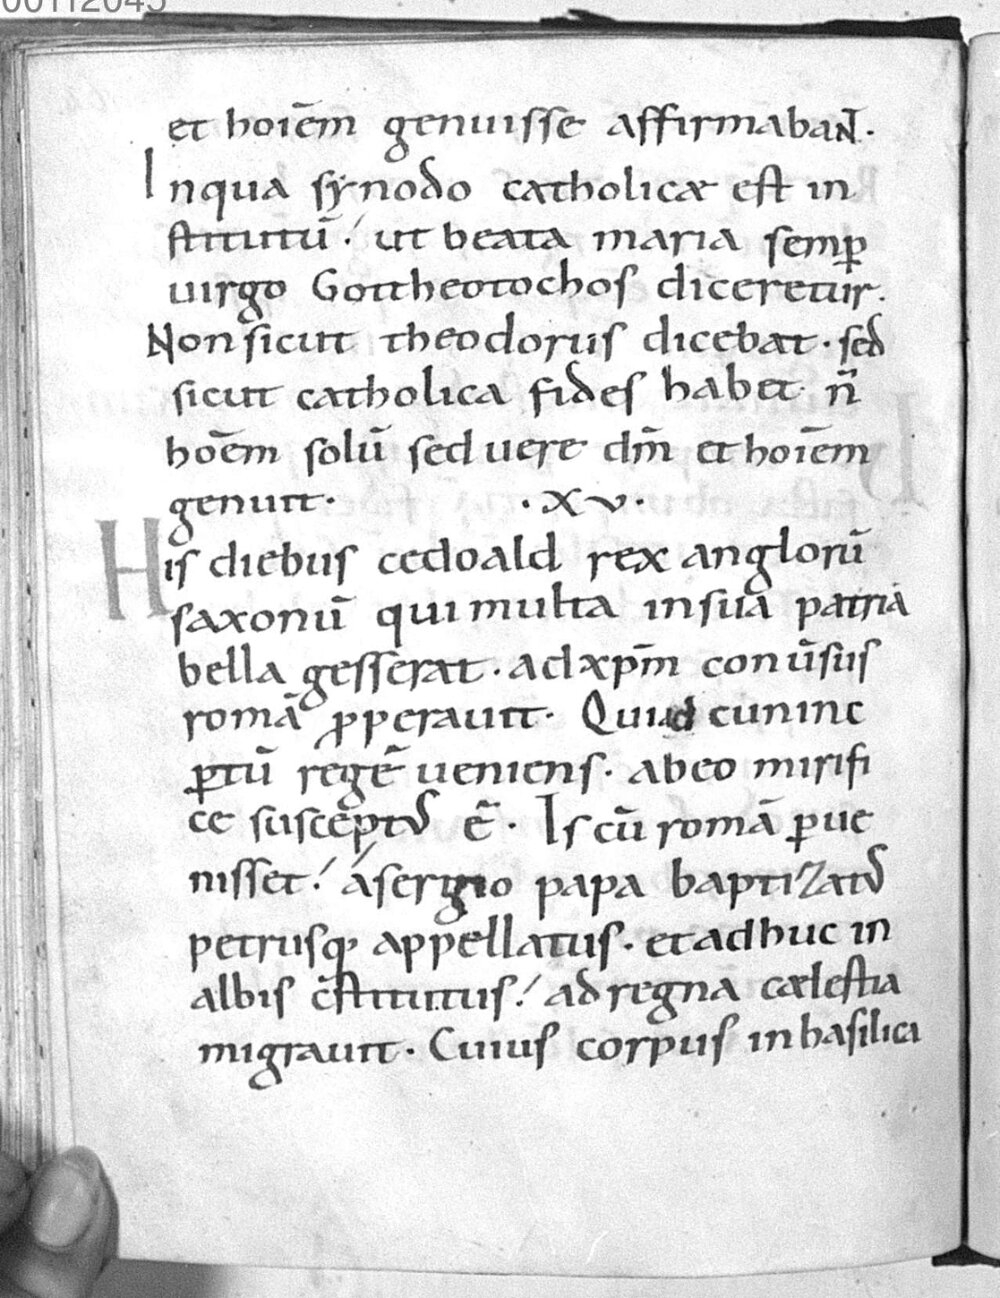 et hoiēm genuisse affirmabaN̄.
In qua synodo catholicæ est in
stitutū. ut beata maria semꝑ
uirgo Gottheotochos diceretur.
Non sicut theodorus dicebat. sed
sicut catholica fides habet n̄
hoēm solū sed uere dm̄ et hoiēm
genuit. ·XV·
His diebus cedoald rex anglorū
saxonū qui multa in suā patriā
bella gesserat. ad xp̄m conūsus
romā ꝓperauit. Qui ad cuninc
ꝑtū regē ueniens. ab eo mirifi
ce susceptus ē. Is cū romā ꝑue
nisset! a sergio papa baptizatus
petrusq; appellatus. et adhuc in
albis c̄stitutus! ad regna cælestia
migrauit. Cuius corpus in basilica